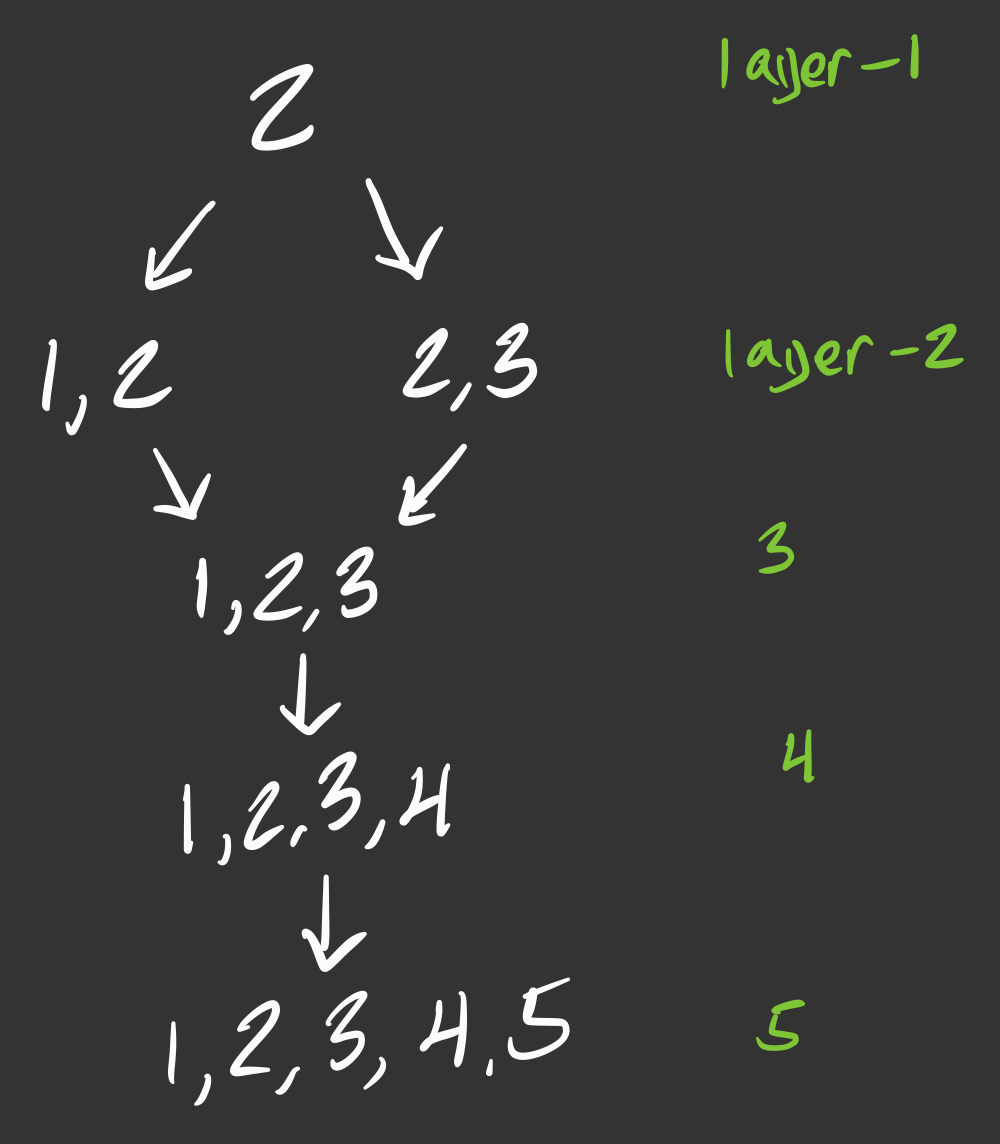 2 layer-1
1,2 2,3 layer-2
1,2,3 3
1,2,3,4 4
1,2,3,4,5 5